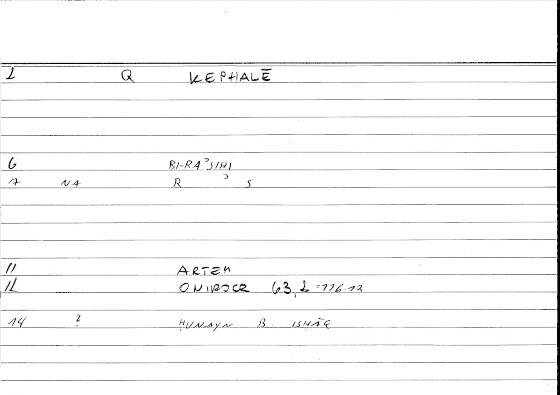 1 Q KEPHALĒ
6 BI-RAʾSIHI
7 NA R ʾ S
11 ARTEM
12 ONIROCR 63,2 =116.12
14 ? ḤUNAYN B. ISḤĀQ